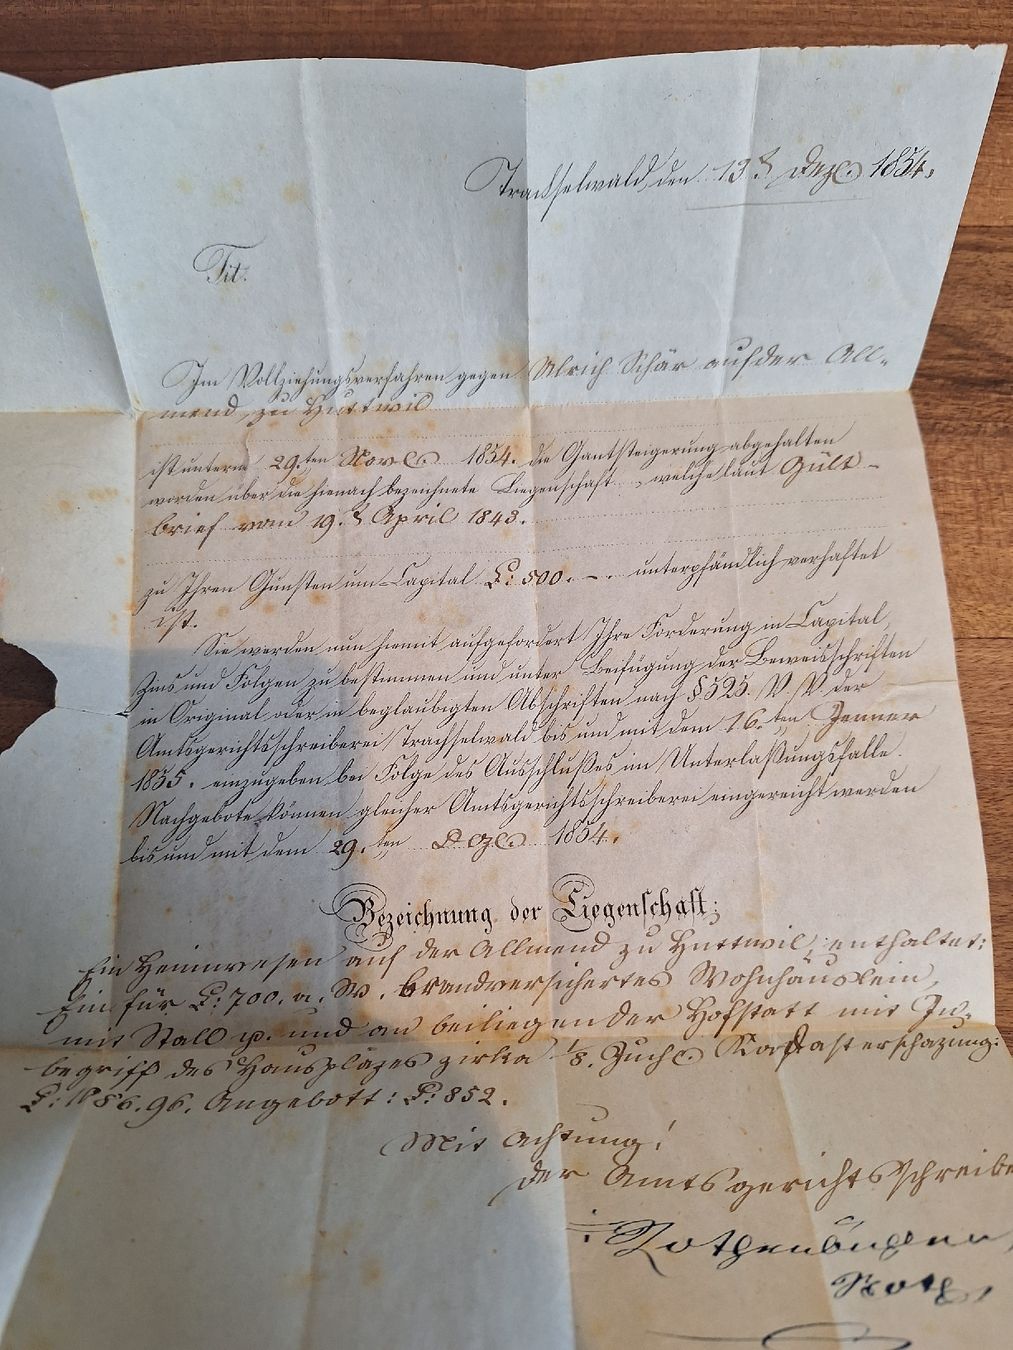 Trachselwald, den 13.t Dez. 1854.
Tit.
Im Vollziehungsverfahren gegen Ulrich Schär auf der All-
mend zu Huttwil
ist unterm 29.ten Nov. 1854. die Gantsteigerung abgehalten
worden über die hienach bezeichnete Liegenschaft, welche laut Gült-
brief vom 19.t April 1843.
zu Ihren Gunsten um Capital L: 500. – . unterpfändlich verhaftet
ist.
Sie werden nun hiemit aufgefordert Ihre Forderung in Capital,
Zins und Folgen zu bestimmen und unter Beifügung der Beweisschriften
in Original oder in beglaubigten Abschriften nach § 525. V. V. der
Amtsgerichtsschreiberei Trachselwald bis und mit dem 16.ten Jenner
1855. einzugeben bei Folge des Ausschlußes im Unterlaßungsfalle.
Nachgebote können gleicher Amtsgerichtsschreiberei eingereicht werden
bis und mit dem 29.ten Dez. 1854.
Bezeichnung der Liegenschaft:
Ein Heimwesen auf der Allmend zu Huttwil, enthaltet:
Ein für L: 700. a. W. brandversichertes Wohnhäuslein,
mit Stall p. und an beiliegender Hofstatt mit In-
begriff des Hausplazes zirka 1/8. Juch. Kadasterschazung:
Angebott: L: 852.
Mit Achtung!
der Amtsgerichtsschreibe